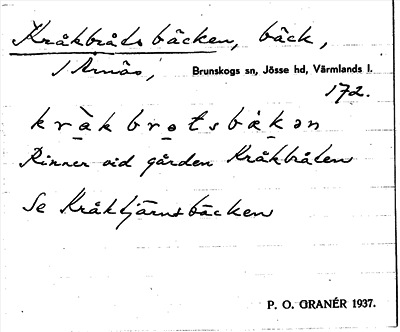 Kråkbråtsbäcken, bäck,
i Årnäs, Brunskogs sn, Jösse hd, Värmlands l.
172.
kràkbrotsbækən
Rinner vid gården Kråkbråten
Se Kråktjärnsbäcken
P. O. GRANÉR 1937.